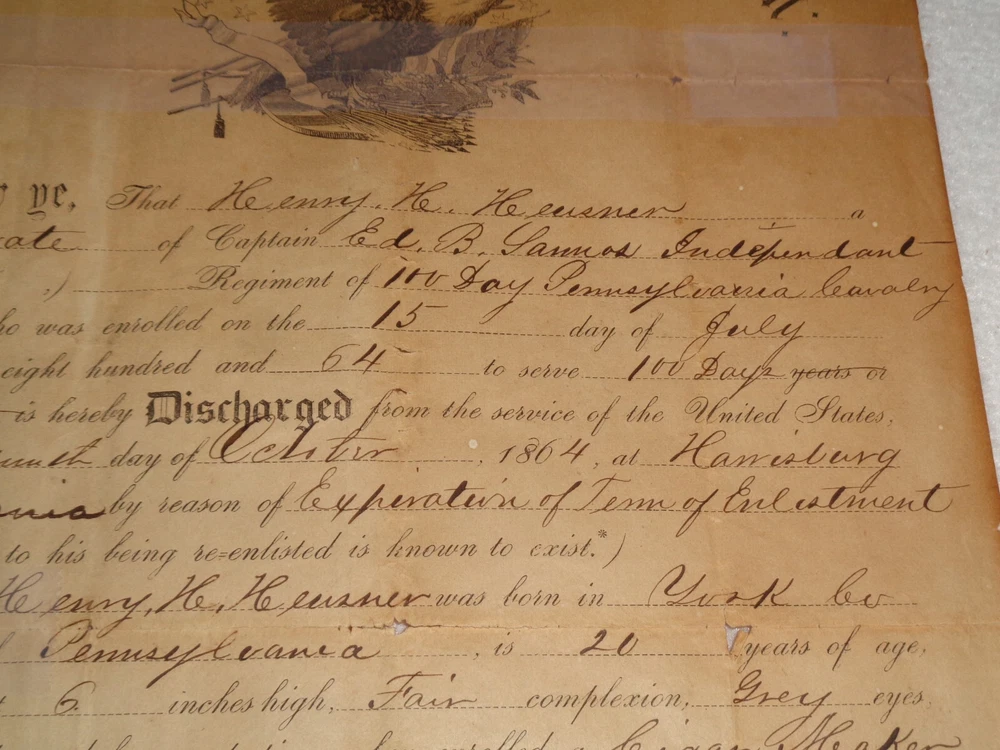 ye, That Henry. H. Heusner a
of Captain Ed. B. Sannos Independant
Regiment of 100 Day Pennsylvania Cavalry
was enrolled on the 15 day of July
eight hundred and 64 to serve 100 Days years or
is hereby Discharged from the service of the United States,
day of October, 1864, at Harrisburg
by reason of Expiration of Term of Enlistment
to his being re=enlisted is known to exist.*)
Henry, H, Heusner was born in York Co
Pennsylvania, is 20 years of age,
6 inches high, Fair complexion, Grey eyes,
enrolled a Cigar Maker